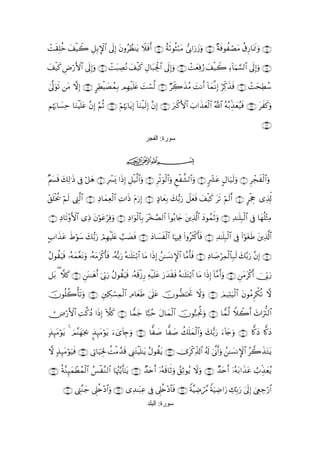 وَنَمَارِقُ مَصْفُوفَةٌ ۝ وَزَرَابِيُّ مَبْثُوثَةٌ ۝ أَفَلَا يَنظُرُونَ إِلَى الْإِبِلِ كَيْفَ خُلِقَتْ
۝ وَإِلَى السَّمَاءِ كَيْفَ رُفِعَتْ ۝ وَإِلَى الْجِبَالِ كَيْفَ نُصِبَتْ ۝ وَإِلَى الْأَرْضِ كَيْفَ
سُطِحَتْ ۝ فَذَكِّرْ إِنَّمَا أَنتَ مُذَكِّرٌ ۝ لَّسْتَ عَلَيْهِم بِمُصَيْطِرٍ ۝ إِلَّا مَن تَوَلَّىٰ
وَكَفَرَ ۝ فَيُعَذِّبُهُ اللَّهُ الْعَذَابَ الْأَكْبَرَ ۝ إِنَّ إِلَيْنَا إِيَابَهُمْ ۝ ثُمَّ إِنَّ عَلَيْنَا حِسَابَهُم
۝
سورة: الفجر
بِسْمِ اللَّهِ الرَّحْمَٰنِ الرَّحِيمِ
وَالْفَجْرِ ۝ وَلَيَالٍ عَشْرٍ ۝ وَالشَّفْعِ وَالْوَتْرِ ۝ وَاللَّيْلِ إِذَا يَسْرِ ۝ هَلْ فِي ذَٰلِكَ قَسَمٌ
لِّذِي حِجْرٍ ۝ أَلَمْ تَرَ كَيْفَ فَعَلَ رَبُّكَ بِعَادٍ ۝ إِرَمَ ذَاتِ الْعِمَادِ ۝ الَّتِي لَمْ يُخْلَقْ
مِثْلُهَا فِي الْبِلَادِ ۝ وَثَمُودَ الَّذِينَ جَابُوا الصَّخْرَ بِالْوَادِ ۝ وَفِرْعَوْنَ ذِي الْأَوْتَادِ ۝
الَّذِينَ طَغَوْا فِي الْبِلَادِ ۝ فَأَكْثَرُوا فِيهَا الْفَسَادَ ۝ فَصَبَّ عَلَيْهِمْ رَبُّكَ سَوْطَ عَذَابٍ
۝ إِنَّ رَبَّكَ لَبِالْمِرْصَادِ ۝ فَأَمَّا الْإِنسَانُ إِذَا مَا ابْتَلَاهُ رَبُّهُ فَأَكْرَمَهُ وَنَعَّمَهُ فَيَقُولُ
رَبِّي أَكْرَمَنِ ۝ وَأَمَّا إِذَا مَا ابْتَلَاهُ فَقَدَرَ عَلَيْهِ رِزْقَهُ فَيَقُولُ رَبِّي أَهَانَنِ ۝ كَلَّا بَل
لَّا تُكْرِمُونَ الْيَتِيمَ ۝ وَلَا تَحَاضُّونَ عَلَىٰ طَعَامِ الْمِسْكِينِ ۝ وَتَأْكُلُونَ
التُّرَاثَ أَكْلًا لَّمًّا ۝ وَتُحِبُّونَ الْمَالَ حُبًّا جَمًّا ۝ كَلَّا إِذَا دُكَّتِ الْأَرْضُ
دَكًّا دَكًّا ۝ وَجَاءَ رَبُّكَ وَالْمَلَكُ صَفًّا صَفًّا ۝ وَجِيءَ يَوْمَئِذٍ بِجَهَنَّمَ ۚ يَوْمَئِذٍ
يَتَذَكَّرُ الْإِنسَانُ وَأَنَّىٰ لَهُ الذِّكْرَىٰ ۝ يَقُولُ يَا لَيْتَنِي قَدَّمْتُ لِحَيَاتِي ۝ فَيَوْمَئِذٍ لَّا
يُعَذِّبُ عَذَابَهُ أَحَدٌ ۝ وَلَا يُوثِقُ وَثَاقَهُ أَحَدٌ ۝ يَا أَيَّتُهَا النَّفْسُ الْمُطْمَئِنَّةُ ۝
ارْجِعِي إِلَىٰ رَبِّكِ رَاضِيَةً مَّرْضِيَّةً ۝ فَادْخُلِي فِي عِبَادِي ۝ وَادْخُلِي جَنَّتِي ۝
سورة: البلد